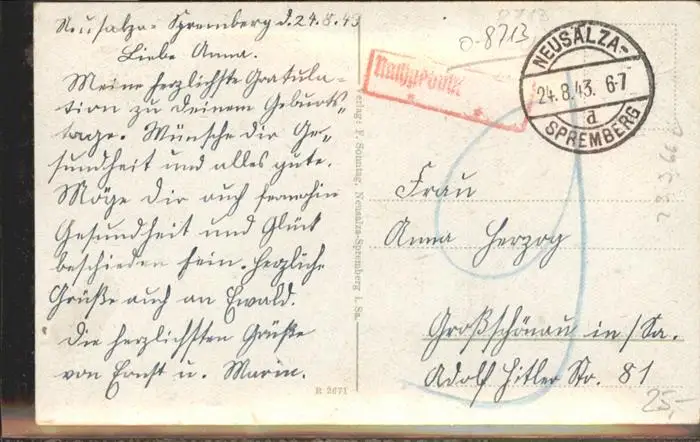 Neusalza-Spremberg d. 24.8.43
Liebe Anna.
Meine herzlichste Gratula-
tion zu deinem Geburts-
tage. Wünsche dir Ge-
sundheit und alles gute.
Möge dir auch fernerhin
Gesundheit und Glück
beschieden sein. Herzliche
Grüße auch an Ewald.
Die herzlichsten Grüße
von Ernst u. Marie.
Verlag: F. Sonntag, Neusalza-Spremberg i. Sa.
R 2671
8713
o-8713
Nachgebühr
NEUSALZA-
24.8.43. 6-7
a
SPREMBERG
9
Frau
Anna Herzog
Großschönau in/Sa.
Adolf Hitler Str. 81
25,-